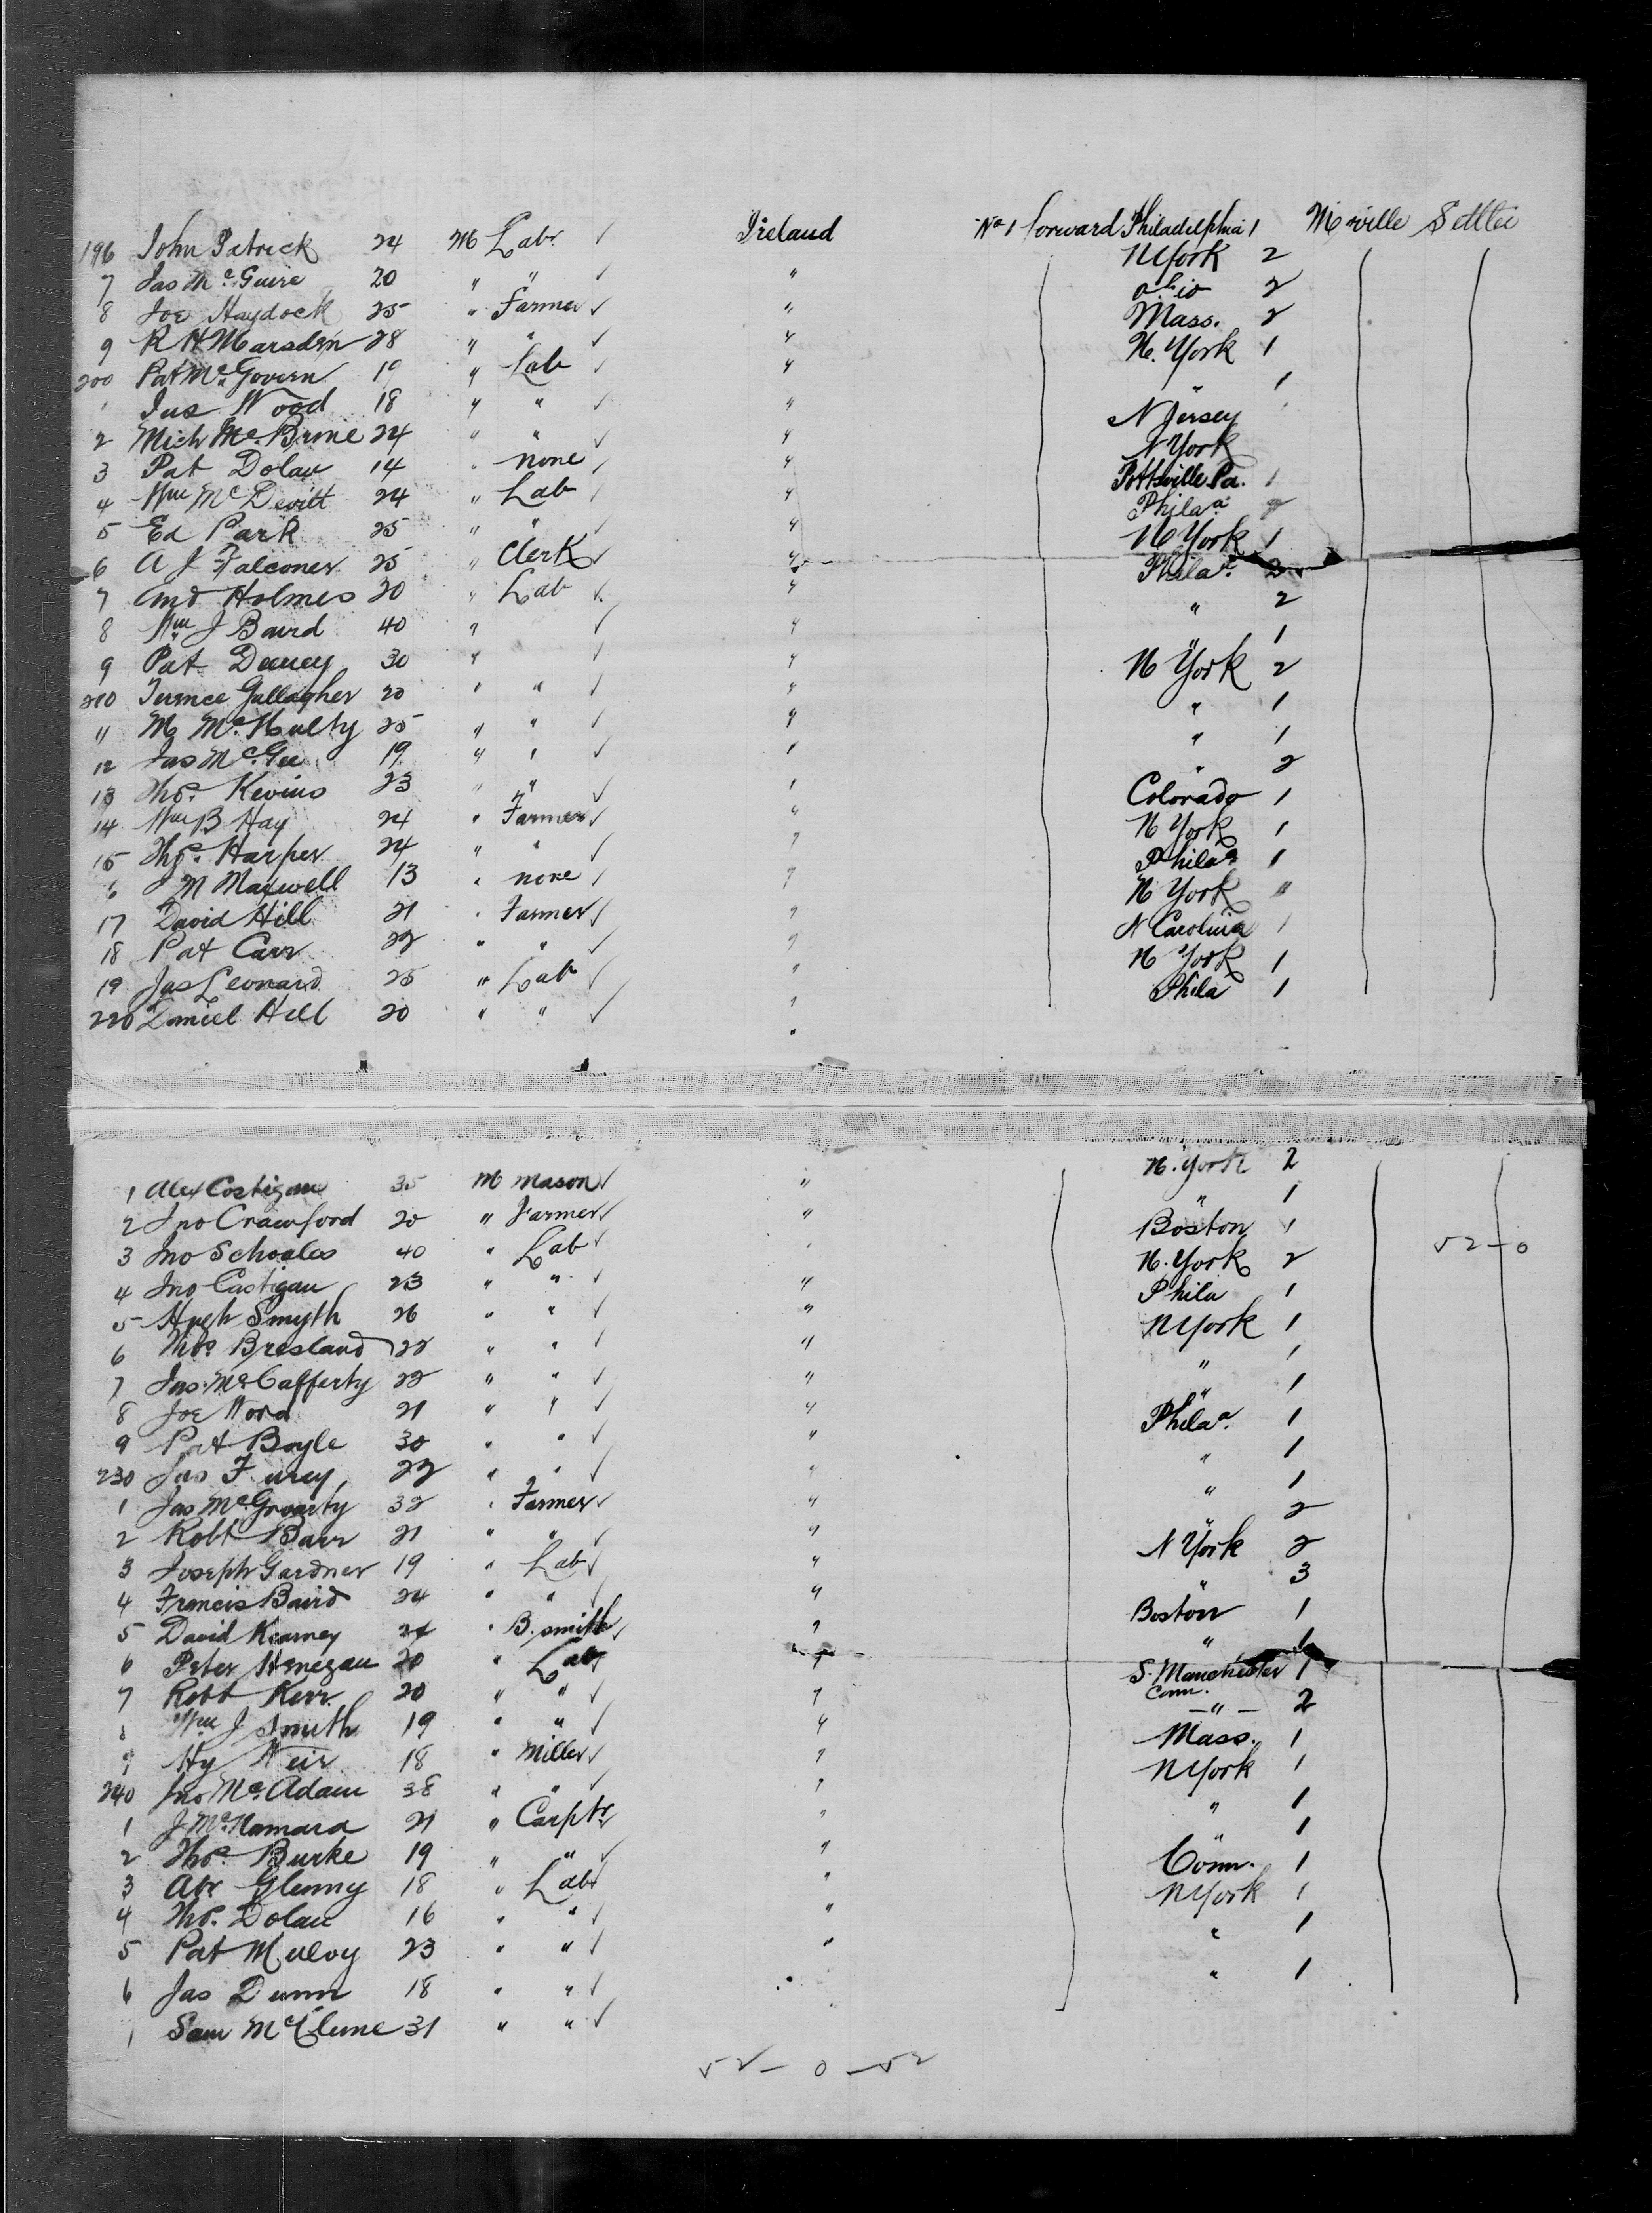 196 John Patrick 24 M Labr. ✓ Ireland No 1 forward Philadelphia 1 Moville Settler
7 Jas McGuire 20 " " ✓ " N York 2
8 Joe Haydock 25 " Farmer ✓ " Ohio 2
9 R H Marsden 28 " " ✓ " Mass. 2
200 Pat McGovern 19 " Lab ✓ " N. York 1
1 Jas Wood 18 " " ✓ " " 1
2 Mich McBrine 24 " " ✓ " N Jersey
3 Pat Dolan 14 " none " N York
4 Wm McDevitt 24 " Lab " Pottsville Pa. 1
5 Ed Park 25 " " ✓ " Phila a
6 A J Falconer 25 " Clerk ✓ " N York 1
7 And Holmes 20 " Lab ✓ " Phila a. 2
8 Wm J Baird 40 " ✓ " " 2
9 Pat 30 " ✓ " " 1
210 Terence Gallagher 20 " " ✓ " N York 2
11 M McNulty 25 " " ✓ " " 1
12 Jas McGee 19 " " ✓ " " 1
13 Thos. Kevins 23 " " ✓ " " 2
14 Wm B Hay 24 " Farmer ✓ " Colorado 1
15 Thos. Harper 24 " " ✓ " N York 1
6 J M Maxwell 13 " none " Phila a 1
17 David Hill 21 " Farmer ✓ " N York "
18 Pat Carr 22 " " ✓ " N Carolina 1
19 Jas Leonard 25 " Lab ✓ " N York 1
220 Daniel Hill 20 " " ✓ " Phila 1
1 Alex Costigan 35 M Mason ✓ " N. York 2
2 Jno Crawford 20 " Farmer ✓ " " 1
3 Jno Schoales 40 " Lab ✓ " Boston 1 52-0
4 Jno Castigan 23 " " ✓ " N. York 2
5 Hugh Smyth 26 " " ✓ " Phila 1
6 Thos Bresland 22 " " ✓ " N York 1
7 Jas. McCafferty 22 " " ✓ " " 1
8 Joe Ward 21 " " ✓ " " 1
9 Pat Boyle 30 " " ✓ " Phila a. 1
230 Jas Furey 22 " " ✓ " " 1
1 Jas McGroarty 32 " Farmer ✓ " " 1
2 Robt Barr 21 " " ✓ " " 2
3 Joseph Gardner 19 " Lab ✓ " N York 2
4 Francis Baird 24 " " ✓ " " 3
5 David Kearney 24 " B. smith ✓ " Boston 1
6 Peter Henegan 20 " Lab ✓ " " 1
7 Robt Kerr 20 " " ✓ " S. Manchester Conn. 1
8 Wm J Smith 19 " " ✓ " " 2
9 Hy Weir 18 " Miller ✓ " Mass. 1
240 Jno McAdam 38 " " ✓ " N York 1
1 J McNamara 21 " Carptr " " 1
2 Thos. Burke 19 " " ✓ " " 1
3 Abr Glenny 18 " Lab ✓ " Conn. 1
4 Thos. Dolan 16 " " ✓ " N York 1
5 Pat Mulvoy 23 " " ✓ " " 1
6 Jas Dunn 18 " " ✓ " " 1
Sam McClune 31 " " ✓
52-0-52